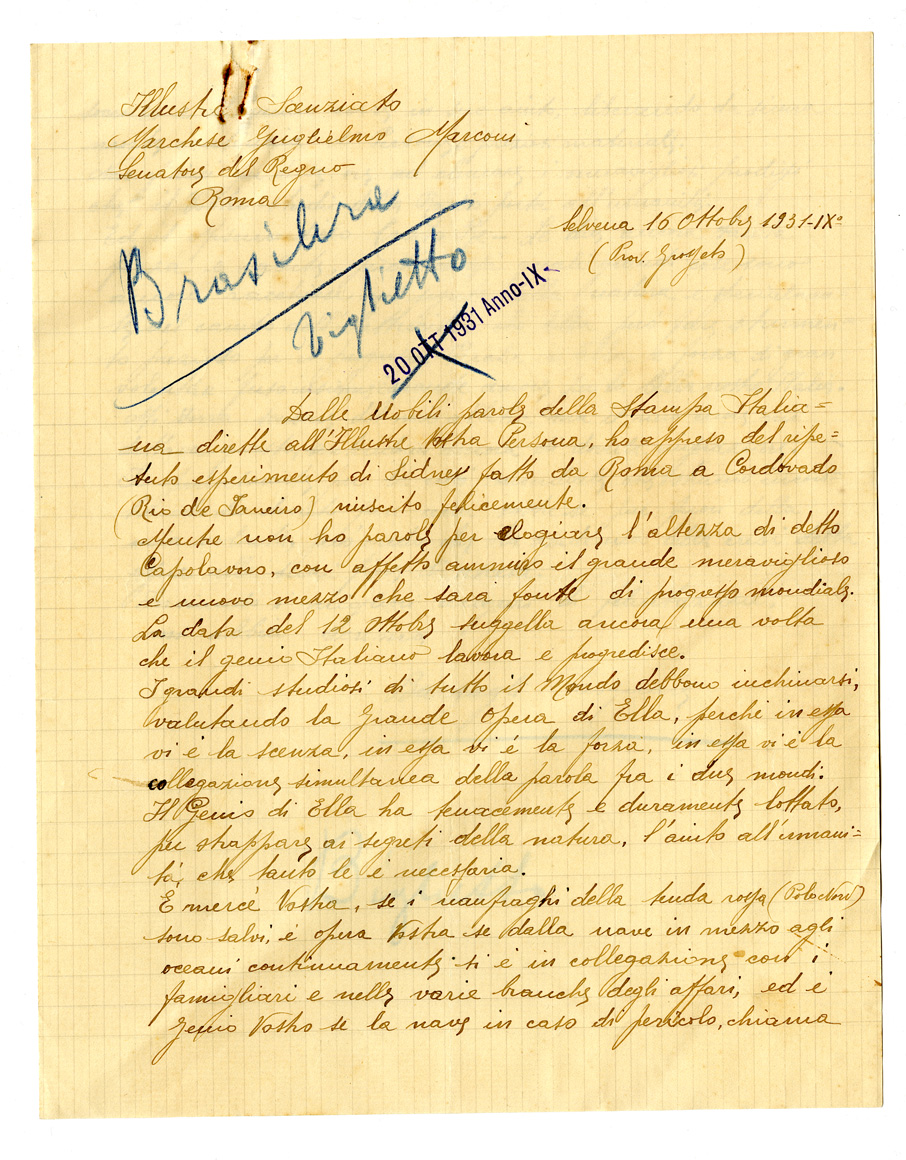 Illustre Scenziato
Marchese Guglielmo Marconi
Senatore del Regno
Roma
Selvena 16 Ottobre 1931-IXº
(Prov. Grosseto)
Brasilera
Viglietto
20 OTT 1931 Anno-IX-
Dalle Nobili parole della Stampa Italia=
na dirette all'Illustre Vostra Persona, ho appreso del ripe=
tuto esperimento di Sidney fatto da Roma a Cordovado
(Rio de Janeiro) riuscito felicemente.
Mentre non ho parole per elogiare l'altezza di detto
Capolavoro, con affetto ammiro il grande meraviglioso
e nuovo mezzo che sarà fonte di progresso mondiale.
La data del 12 Ottobre suggella ancora una volta
che il genio Italiano lavora e progredisce.
I grandi studiosi di tutto il Mondo debbono inchinarsi,
valutando la Grande Opera di Ella, perché in essa
vi è la scenza, in essa vi é la forza, in essa vi é la
collegazione simultanea della parola fra i due mondi.
Il Genio di Ella ha tenacemente e duramente lottato,
per strappare ai segreti della natura, l'aiuto all'umani=
tà, che tanto le è necessaria.
E mercé Vostra, se i naufraghi della tenda rossa (Polo Nord)
sono salvi, é opera Vostra se dalla nave in mezzo agli
oceani continuamente si é in collegazione con i
famigliari e nelle varie branche degli affari, ed é
Genio Vostro se la nave in caso di pericolo, chiama